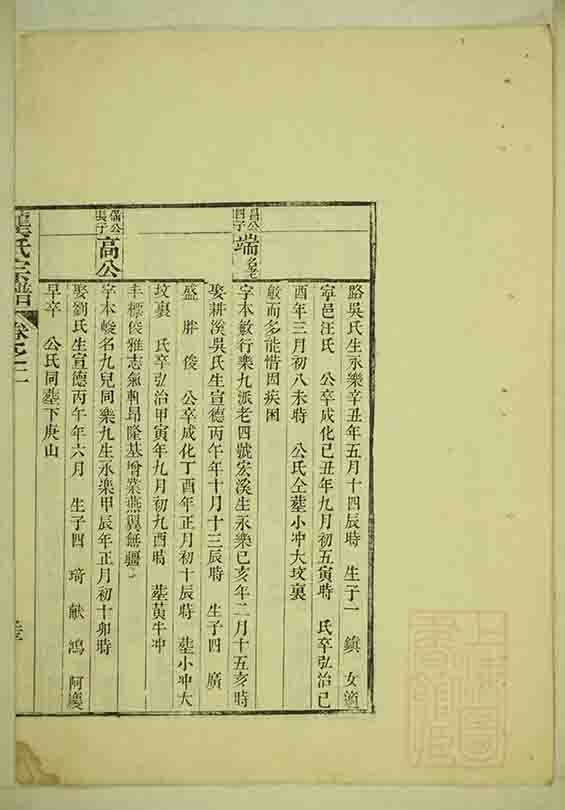 路吳氏生永樂辛丑年五月十四辰時 生子一 鎮 女適
寧邑汪氏 公卒成化己丑年九月初五寅時 氏卒弘治己
酉年三月初八未時 公氏仝塟小冲大坟裏
敏而多能惜因疾困
昌公四子 端
字本敏行樂九派老四號宏溪生永樂己亥年二月十五亥時
娶耕溪吳氏生宣德丙午年十月十三辰時 生子四 廣
盛 胖 俊 公卒成化丁酉年正月初十辰時 塟小冲大
坟裏 氏卒弘治甲寅年九月初九酉時 塟黃牛冲
丰標俊雅志氣軒昂隆基增業燕翼無疆
長子 高公
字本峻名九兒同樂九生永樂甲辰年正月初十卯時
娶劉氏生宣德丙午年六月 生子四 琦 猷 鴻 阿慶
早卒 公氏同塟下庚山
龔氏宗譜 卷之二
上海圖書館藏